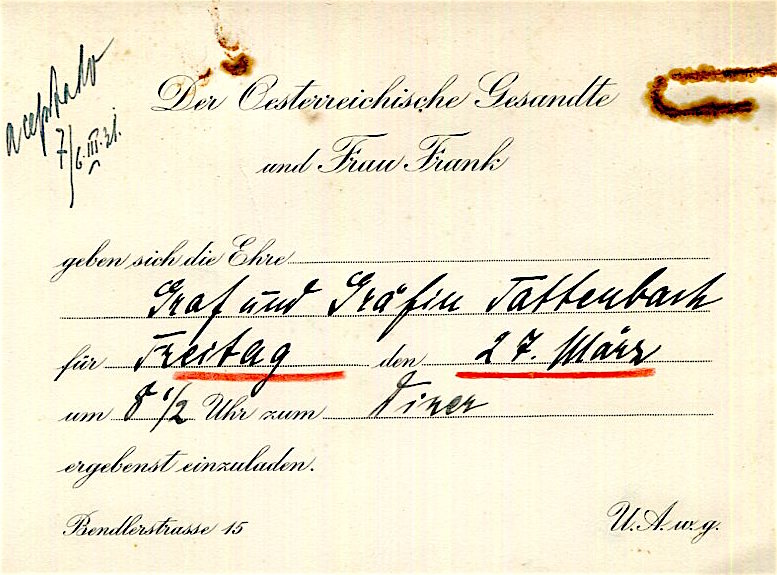 Der Oesterreichische Gesandte
und Frau Frank
geben sich die Ehre
Graf und Gräfin Tattenbach
für Freitag den 27. März
um 8 1/2 Uhr zum Diner
ergebenst einzuladen.
Bendlerstrasse 15
U. A. w. g.